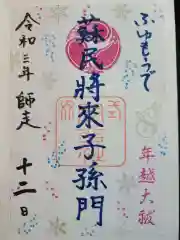 ふゆもうで
年越大祓
蘇民將來子孫門
令和三年 師走
十二日